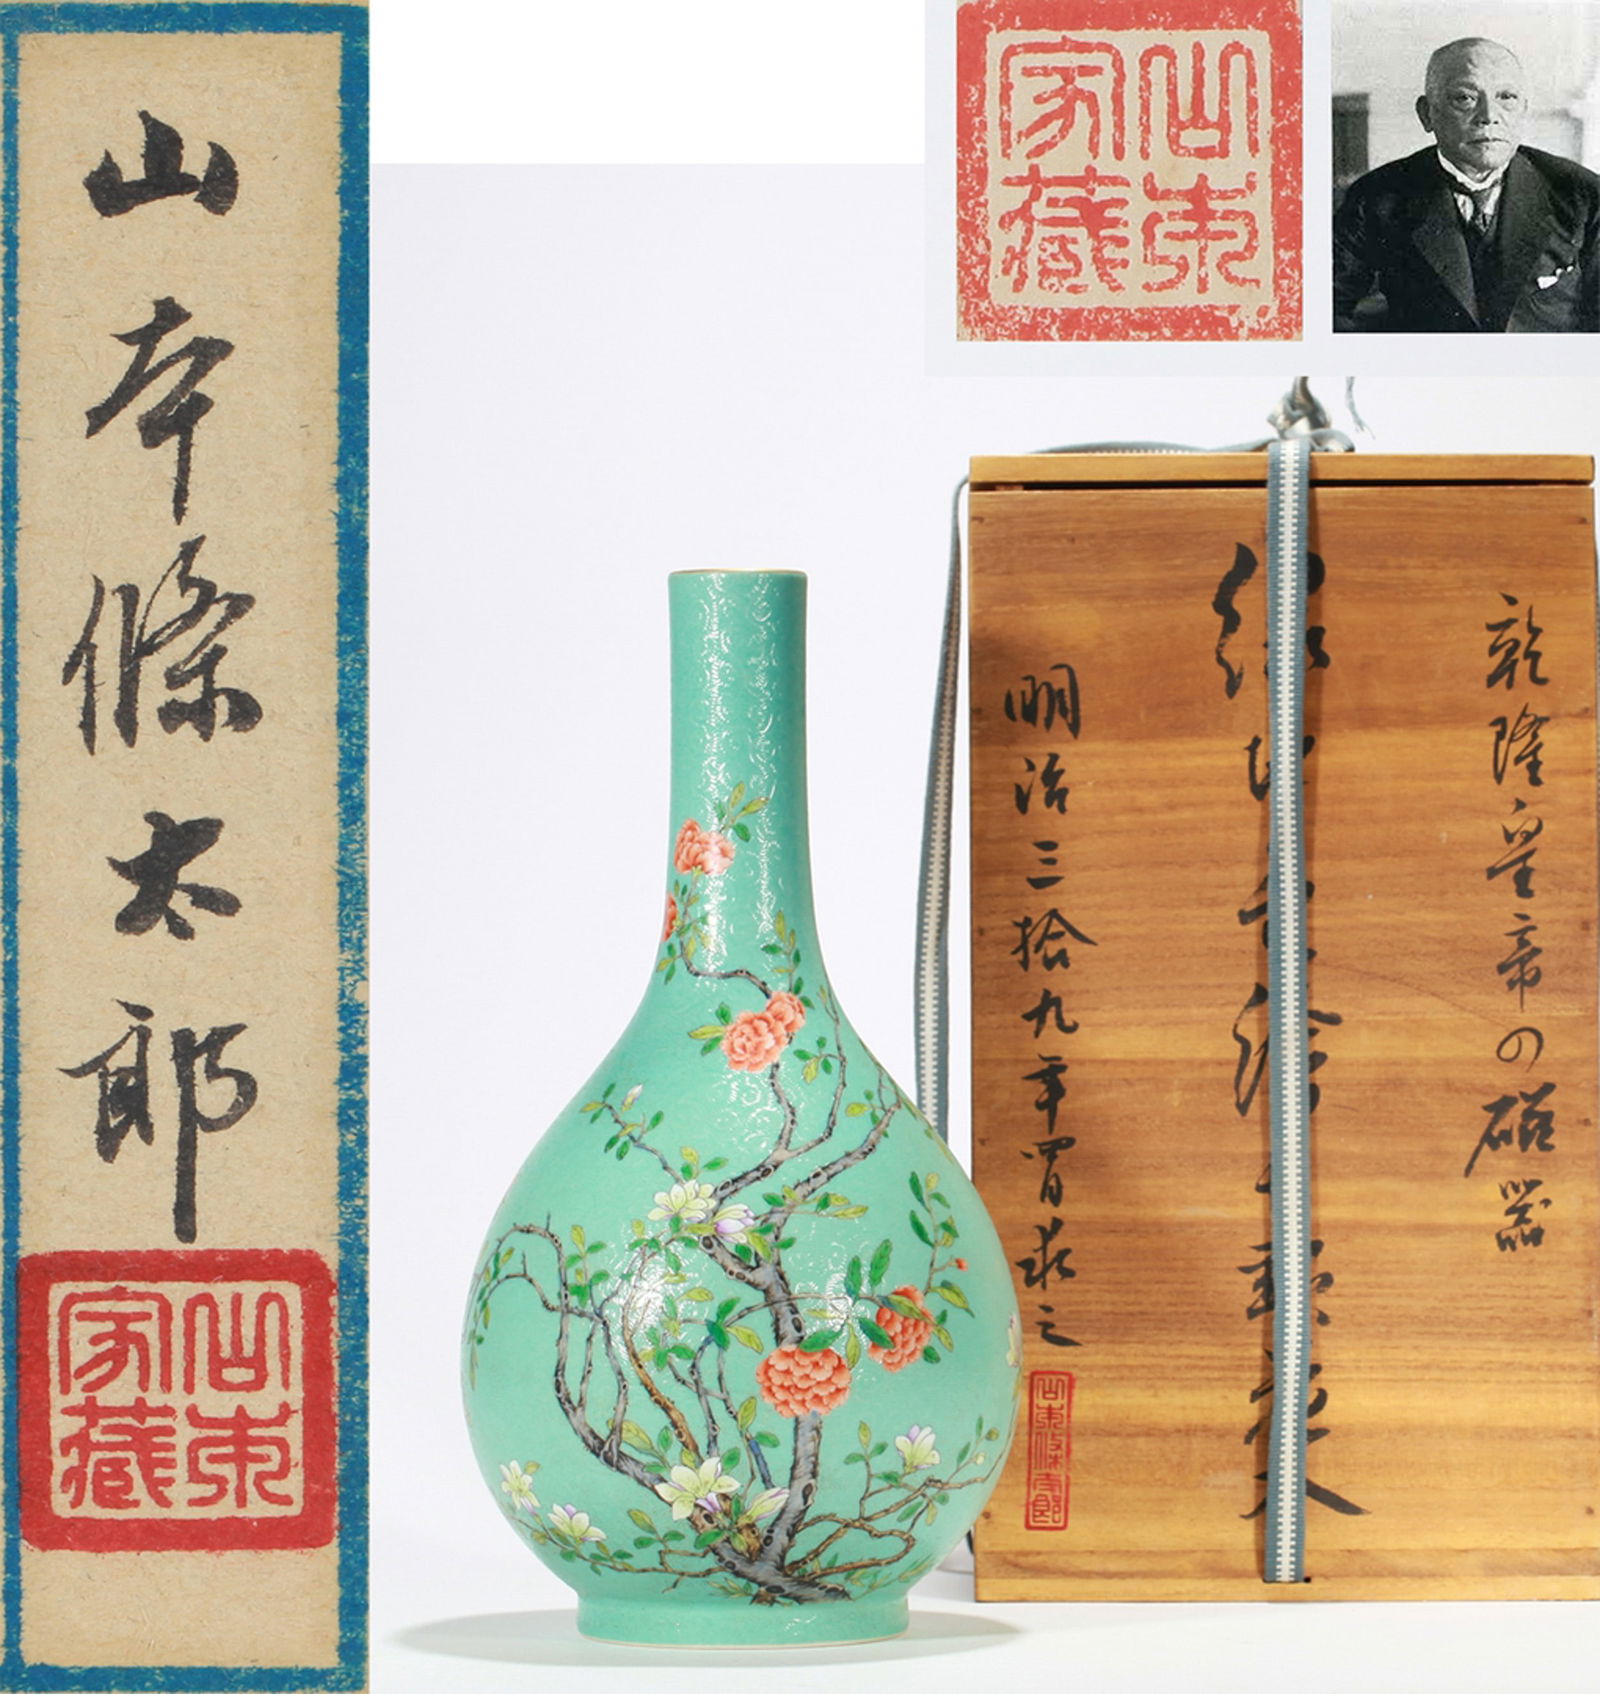 山本條太郎
山本
家藏
山本
家藏
乾隆皇帝の磁器
明治三拾九年買求之
山本條太郎